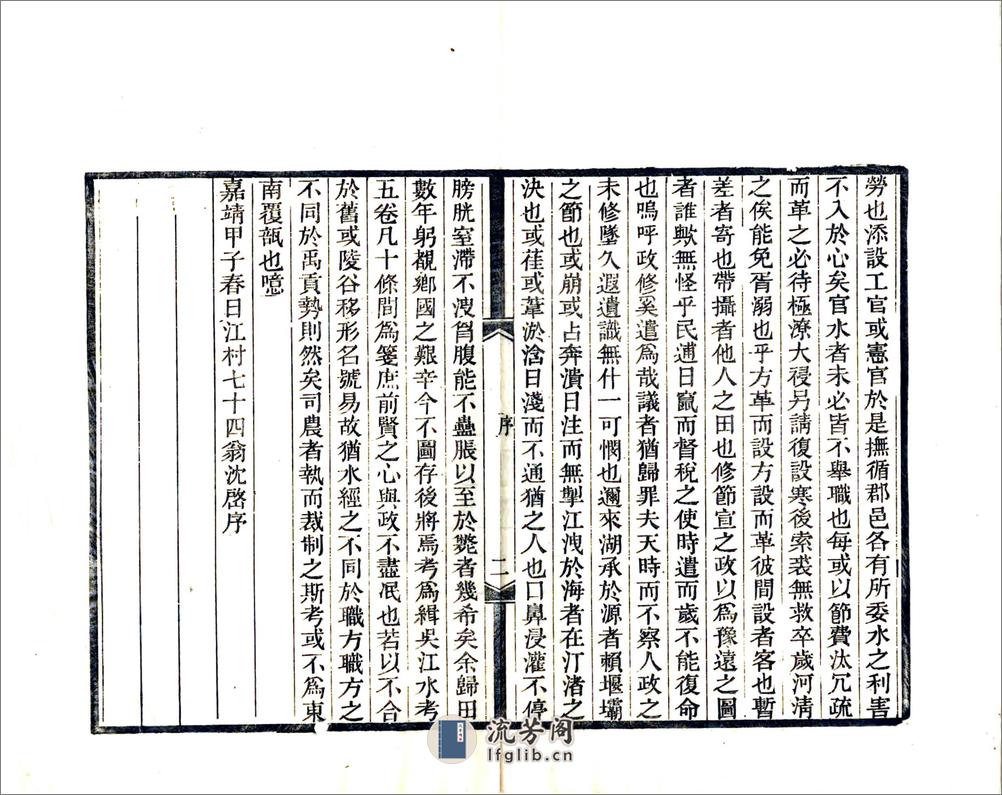 勞也添設工官或憲官於是撫循郡邑各有所委水之利害
不入於心矣官水者未必皆不舉職也每或以節費汰冗疏
而革之必待極潦大祲另請復設寒後索裘無救卒歲河淸
之俟能免胥溺也乎方革而設方設而革彼間設者客也暫
差者寄也帶攝者他人之田也修節宣之政以爲豫遠之圖
者誰歟無怪乎民逋日竄而督稅之使時遣而歲不能復命
也嗚呼政修奚遣爲哉議者猶歸罪夫天時而不察人政之
未修墜久遐遺識無什一可憫也邇來湖承於源者賴堰壩
之節也或崩或占奔潰日注而無掣江洩於海者在汀渚之
決也或萑或葦淤淊日淺而不通猶之人也口鼻浸灌不停
序
二
膀胱窒滯不洩胷腹能不蠱脹以至於斃者幾希矣余歸田
數年躬覩鄉國之艱辛今不圖存後將焉考爲緝吳江水考
五卷凡十條間爲箋庶前賢之心與政不盡泯也若以不合
於舊或陵谷移形名號易故猶水經之不同於職方職方之
不同於禹貢勢則然矣司農者執而裁制之斯考或不爲東
南覆瓿也噫
嘉靖甲子春日江村七十四翁沈啓序
流芳阁
lfglib.cn